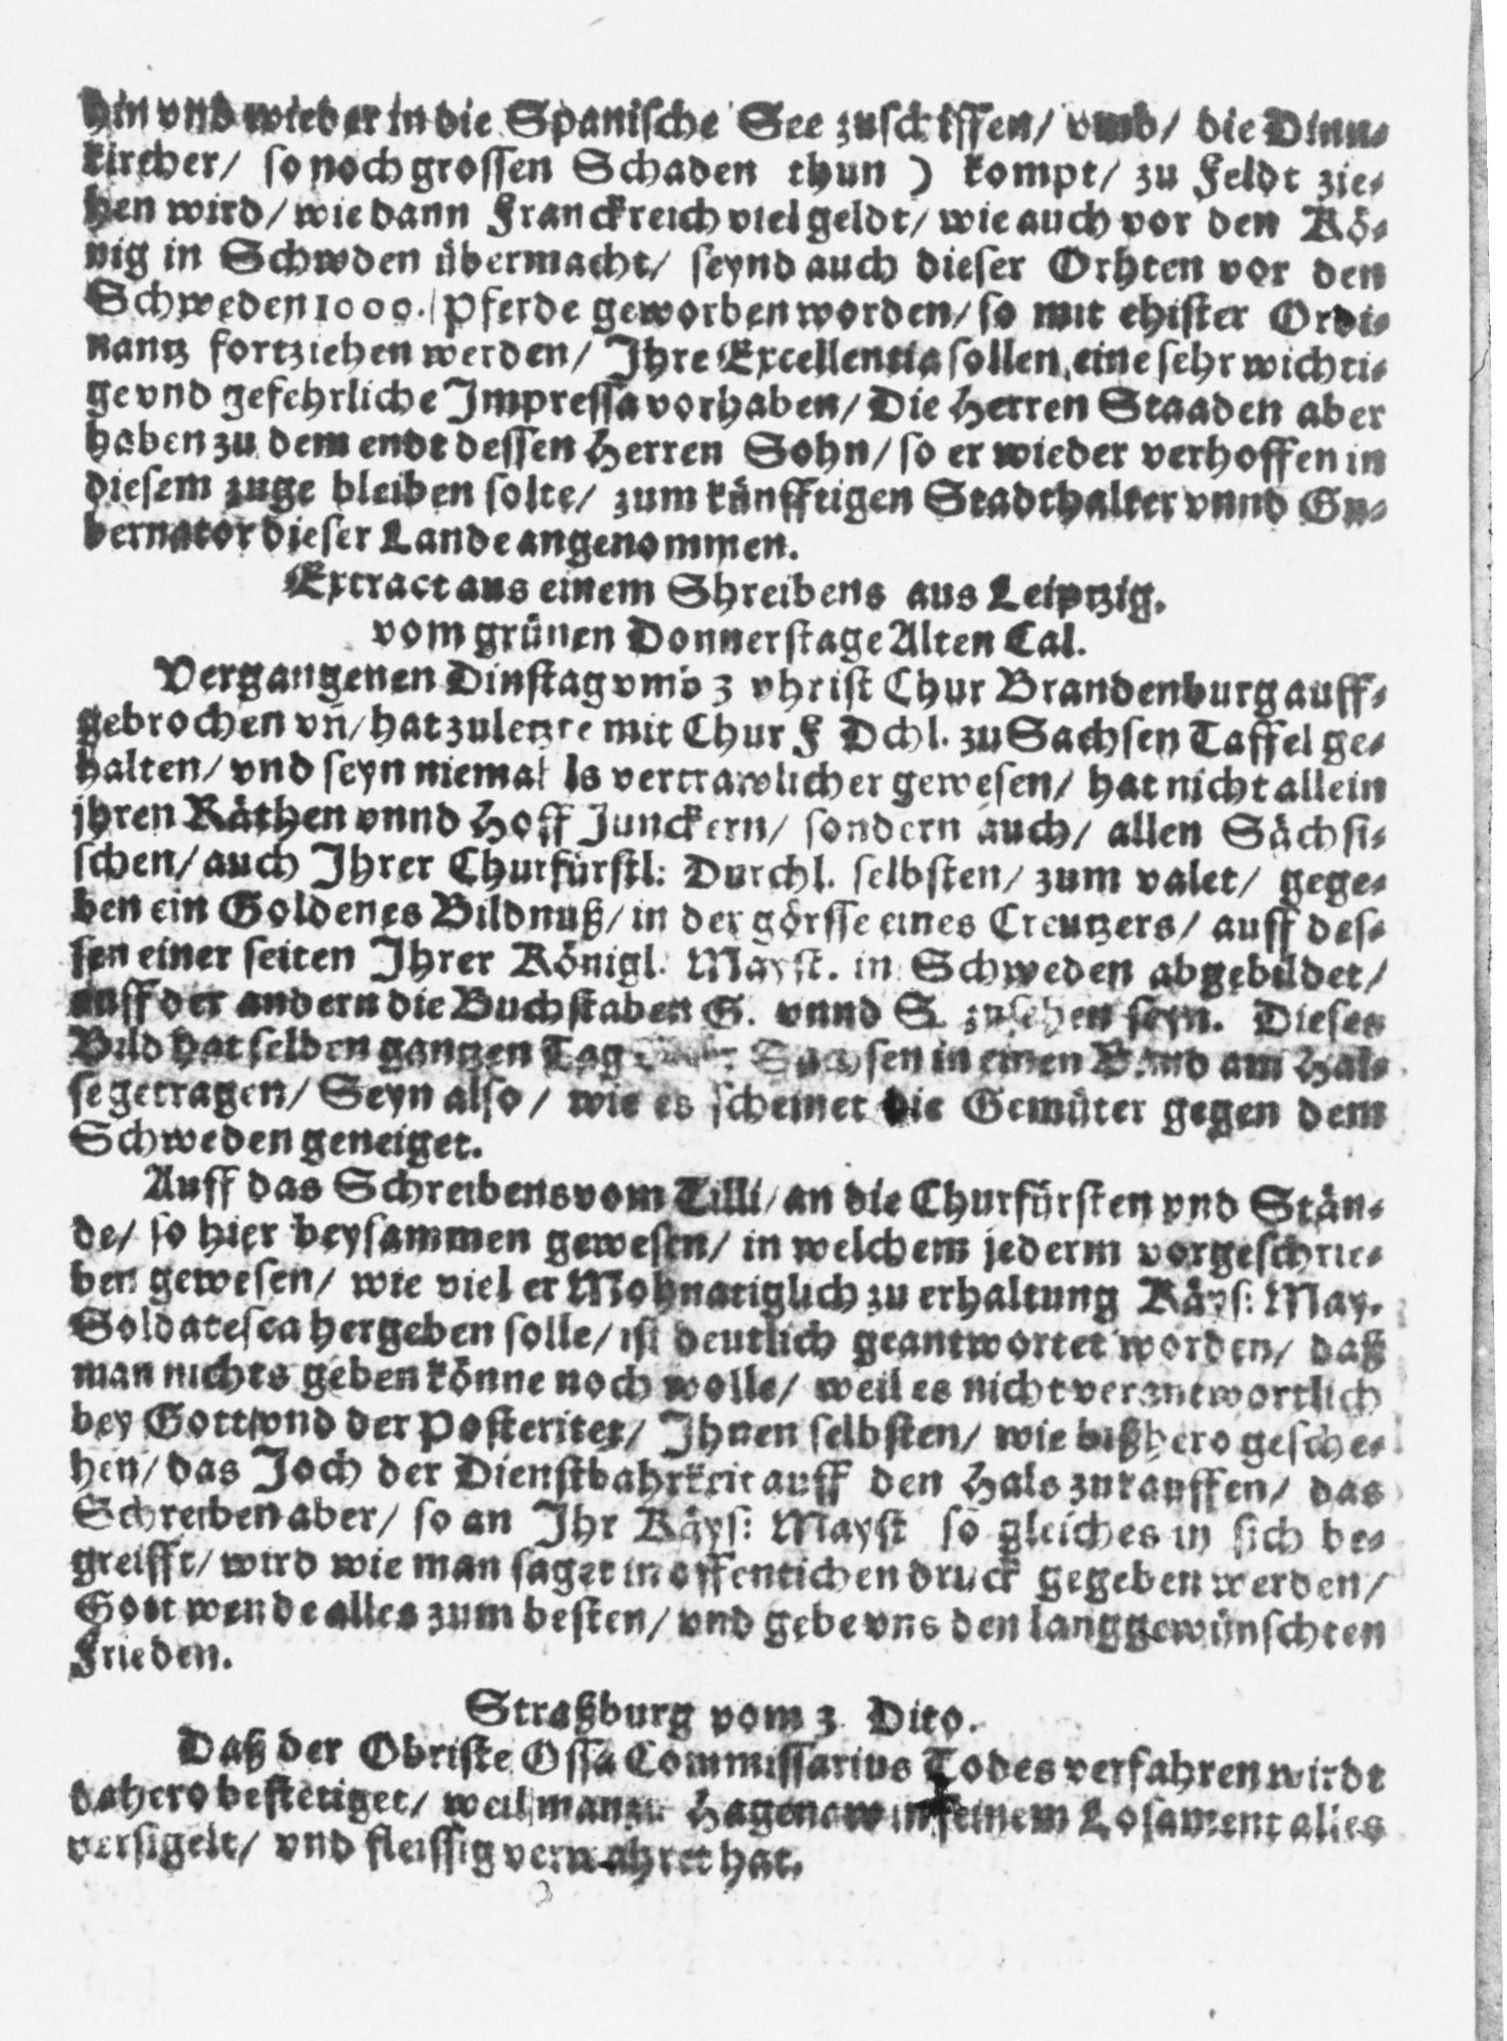 hin vnd wieder in die Spanische See zuschiffen/ vmb/ die Dünn-
kircher/ so noch grossen Schaden thun ) kompt/ zu Feldt zie-
hen wird/ wie dann Franckreich viel geldt/ wie auch vor den Kö-
nig in Schwden übermacht/ seynd auch dieser Orhten vor den
Schweden 1000. Pferde geworben worden/ so mit ehister Ordi-
nantz fortziehen werden/ Jhre Excellentia sollen eine sehr wichti-
ge vnd gefehrliche Jmpressa vorhaben/ Die Herren Staaden aber
haben zu dem endt dessen Herren Sohn/ so er wieder verhoffen in
diesem zuge bleiben solte/ zum künfftigen Stadthalter vnnd Gu-
bernator dieser Lande angenommen.
Extract aus einem Shreibens aus Leiptzig.
vom grünen Donnerstage Alten Cal.
Vergangenen Dinstag vmb 3 vhr ist Chur Brandenburg auff-
gebrochen vñ/ hat zuletzte mit Chur F Dchl. zu Sachsen Taffel ge-
halten/ vnd seyn niemal ls vertrawlicher gewesen/ hat nicht allein
jhren Räthen vnnd Hoff Junckern/ sondern auch/ allen Sächsi-
schen/ auch Jhrer Churfürstl: Durchl. selbsten/ zum valet/ gege-
ben ein Goldenes Bildnuß/ in der görsse eines Creutzers/ auff des-
sen einer seiten Jhrer Königl. Mayst. in Schweden abgebildet/
auff der andern die Buchstaben G. vnnd S. zusehen seyn. Dieses
Bild hat selben gantzen Tag Sachsen in einen Band am Hal-
se getragen/ Seyn also/ wie es scheinet die Gemüter gegen dem
Schweden geneiget.
Auff das Schreibens vom Tilli/ an die Churfürsten vnd Stän-
de/ so hier beysammen gewesen/ in welchem jederm vorgeschrie-
ben gewesen/ wie viel er Mohnatiglich zu erhaltung Käys: May.
Soldatesca hergeben solle/ ist deutlich geantwortet worden/ daß
man nichts geben könne noch wolle/ weil es nicht verantwortlich
bey Gott vnd der Posteritet/ Jhnen selbsten/ wie bißhero gesche-
hen/ das Joch der Dienstbahrkeit auff den Hals zukauffen/ das
Schreiben aber/ so an Jhr Käys: Mayst so gleiches in sich be-
greifft/ wird wie man saget in offentichen druck gegeben werden/
Gott wende alles zum besten/ vnd gebe vns den langgewünschten
Frieden.
Straßburg vom 3. Dito.
Daß der Obriste Ossa Commissarius Todes verfahren wirdt
dahero bestetiget/ weil man zu Hagenaw in seinem Losament alles
versigelt/ vnd fleissig verwahret hat.